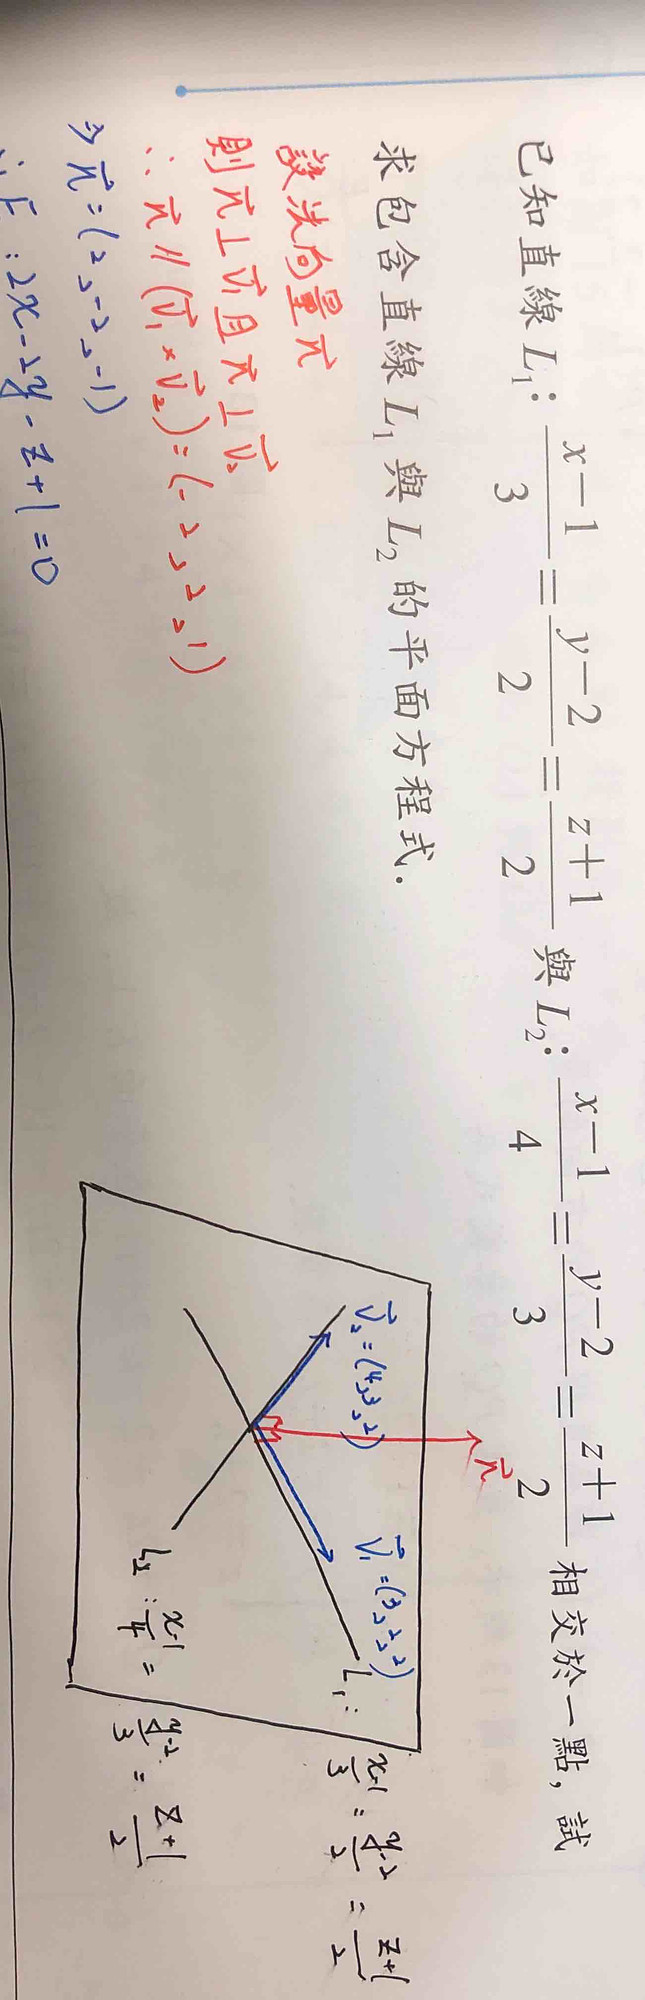 已知直線L₁：\frac{x-1}{3}=\frac{y-2}{2}=\frac{z+1}{2}與L₂：\frac{x-1}{4}=\frac{y-2}{3}=\frac{z+1}{2}相交於一點，試
求包含直線L₁與L₂的平面方程式．
設法向量\vec{n}
則\vec{n}⊥\vec{V}₁且\vec{n}⊥\vec{V}₂
∴\vec{n}∥(\vec{V}₁×\vec{V}₂)=(-2,2,1)
⇒\vec{n}=(2,-2,-1)
∴E：2x-2y-z+1=0
\vec{n}
\vec{V}₂=(4,3,2)
\vec{V}₁=(3,2,2)
L₁：\frac{x-1}{3}=\frac{y-2}{2}=\frac{z+1}{2}
L₂：\frac{x-1}{4}=\frac{y-2}{3}=\frac{z+1}{2}